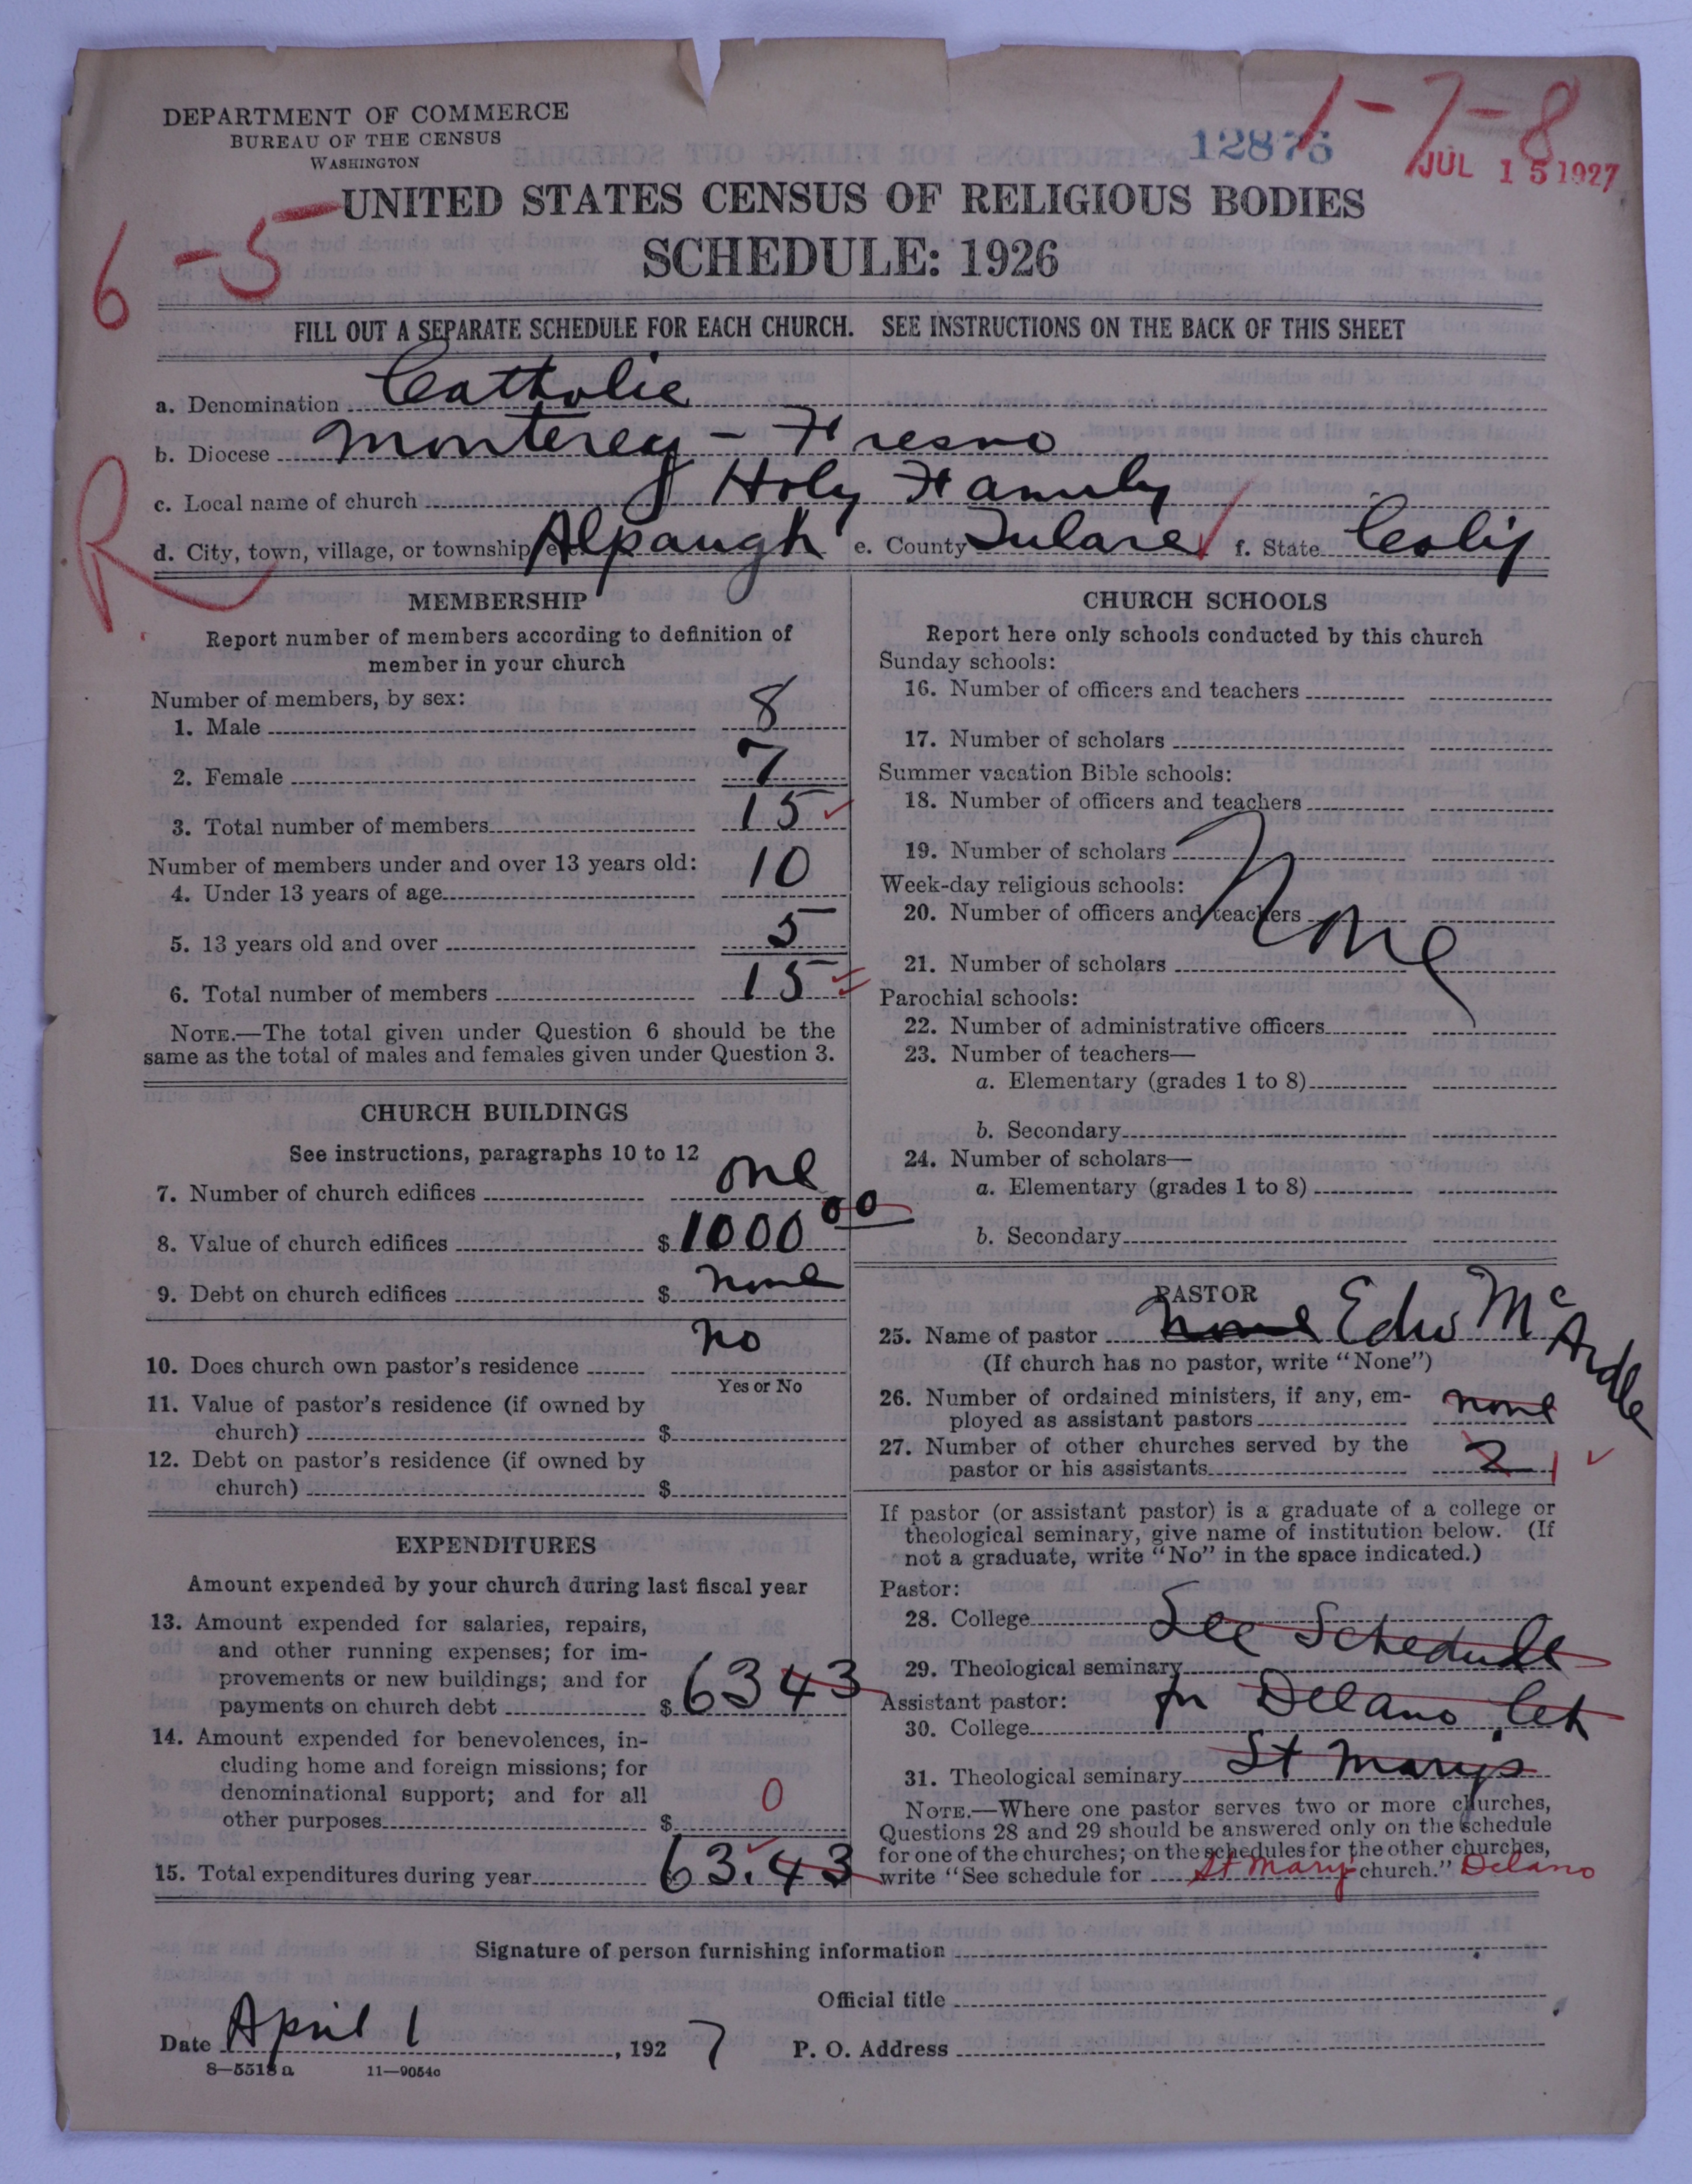 DEPARTMENT OF COMMERCE
BUREAU OF THE CENSUS
WASHINGTON
12876
1-7-8
JUL 15 1927
UNITED STATES CENSUS OF RELIGIOUS BODIES
6-5
SCHEDULE: 1926
FILL OUT A SEPARATE SCHEDULE FOR EACH CHURCH. SEE INSTRUCTIONS ON THE BACK OF THIS SHEET
a. Denomination Catholic
b. Diocese Monterey - Fresno
c. Local name of church Holy Family
R
d. City, town, village, or township, etc. Alpaugh e. County Tulare f. State Calif
MEMBERSHIP
Report number of members according to definition of
member in your church
Number of members, by sex:
1. Male 8
2. Female 7
3. Total number of members 15
Number of members under and over 13 years old:
4. Under 13 years of age 10
5. 13 years old and over 5
6. Total number of members 15
NOTE.—The total given under Question 6 should be the
same as the total of males and females given under Question 3.
CHURCH BUILDINGS
See instructions, paragraphs 10 to 12
7. Number of church edifices one
8. Value of church edifices $ 1000 00
9. Debt on church edifices $ none
10. Does church own pastor's residence no
Yes or No
11. Value of pastor's residence (if owned by
church) $
12. Debt on pastor's residence (if owned by
church) $
EXPENDITURES
Amount expended by your church during last fiscal year
13. Amount expended for salaries, repairs,
and other running expenses; for im-
provements or new buildings; and for
payments on church debt $ 63 43
14. Amount expended for benevolences, in-
cluding home and foreign missions; for
denominational support; and for all
other purposes $ 0
15. Total expenditures during year 63.43
CHURCH SCHOOLS
Report here only schools conducted by this church
Sunday schools:
16. Number of officers and teachers
17. Number of scholars
Summer vacation Bible schools:
18. Number of officers and teachers
19. Number of scholars
None
Week-day religious schools:
20. Number of officers and teachers
21. Number of scholars
Parochial schools:
22. Number of administrative officers
23. Number of teachers—
a. Elementary (grades 1 to 8)
b. Secondary
24. Number of scholars—
a. Elementary (grades 1 to 8)
b. Secondary
PASTOR
25. Name of pastor none Edw McArdle
(If church has no pastor, write "None")
26. Number of ordained ministers, if any, em-
ployed as assistant pastors none
27. Number of other churches served by the
pastor or his assistants 2 1
If pastor (or assistant pastor) is a graduate of a college or
theological seminary, give name of institution below. (If
not a graduate, write "No" in the space indicated.)
Pastor:
28. College See Schedule
29. Theological seminary
Assistant pastor: for Delano, Cath
30. College
31. Theological seminary St Marys
NOTE.—Where one pastor serves two or more churches,
Questions 28 and 29 should be answered only on the schedule
for one of the churches; on the schedules for the other churches,
write "See schedule for St Marys church." Delano
Signature of person furnishing information
Official title
Date April 1, 1927 P. O. Address
8—5518 a 11—9054c